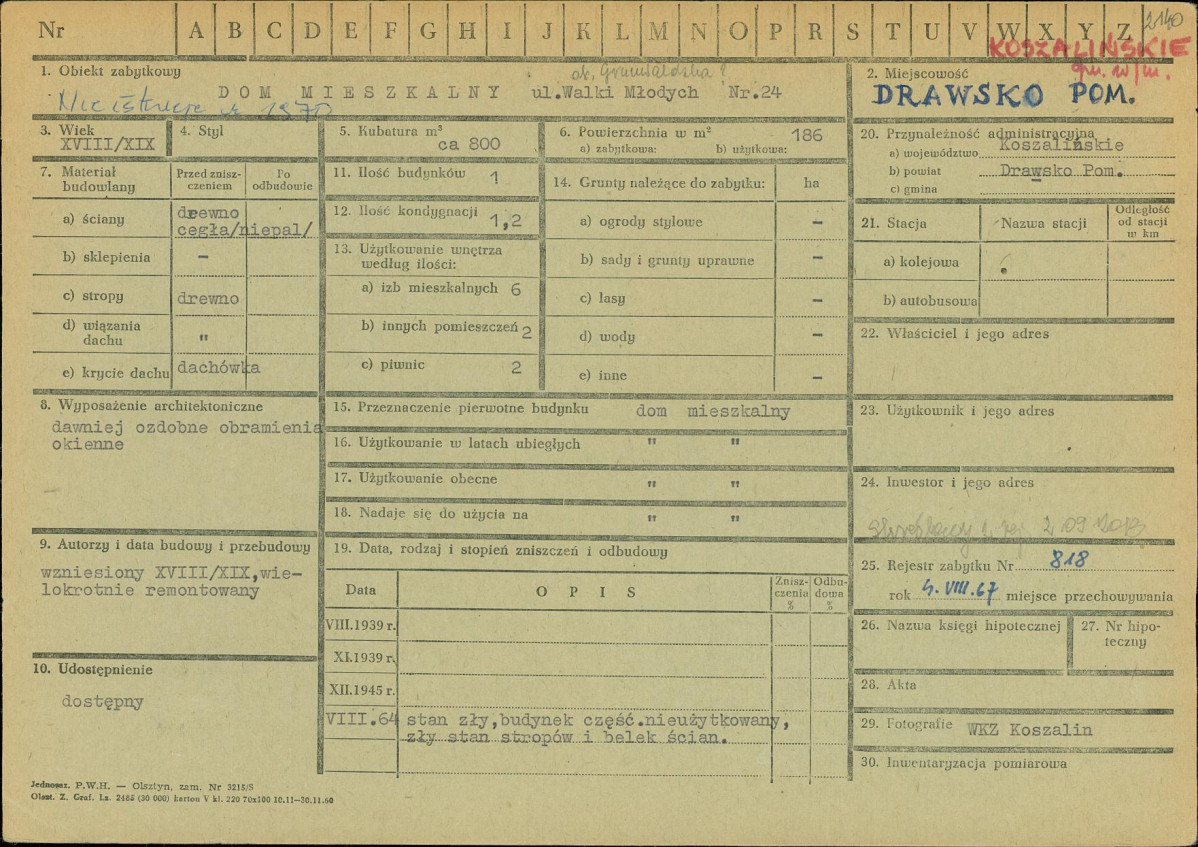 Nr A B C D E F G H I J K L M N O P R S T U V W X Y Z 2140
KOSZALIŃSKIE
gm. w/m.
1. Obiekt zabytkowy
ob. Grunwaldzka ?
DOM MIESZKALNY ul.Walki Młodych Nr.24
Nie istnieje 1970
2. Miejscowość
DRAWSKO POM.
3. Wiek
XVIII/XIX
4. Styl
5. Kubatura m³
ca 800
6. Powierzchnia w m² 186
a) zabytkowa: b) użytkowa:
7. Materiał budowlany
Przed zniszczeniem
Po odbudowie
a) ściany
drewno
cegła/niepal/
b) sklepienia –
c) stropy drewno
d) wiązania dachu "
e) krycie dachu dachówka
8. Wyposażenie architektoniczne
dawniej ozdobne obramienia
okienne
9. Autorzy i data budowy i przebudowy
wzniesiony XVIII/XIX,wie-
lokrotnie remontowany
10. Udostępnienie
dostępny
11. Ilość budynków 1
12. Ilość kondygnacji 1,2
13. Użytkowanie wnętrza
według ilości:
a) izb mieszkalnych 6
b) innych pomieszczeń 2
c) piwnic 2
14. Grunty należące do zabytku: ha
a) ogrody stylowe –
b) sady i grunty uprawne –
c) lasy –
d) wody –
e) inne –
15. Przeznaczenie pierwotne budynku dom mieszkalny
16. Użytkowanie w latach ubiegłych " "
17. Użytkowanie obecne " "
18. Nadaje się do użycia na " "
19. Data, rodzaj i stopień zniszczeń i odbudowy
Data O P I S Zniszczenia % Odbudowa %
VIII.1939 r.
XI.1939 r.
XII.1945 r.
VIII.64 stan zły,budynek część.nieużytkowany,
zły stan stropów i belek ścian.
20. Przynależność administracyjna
a) województwo Koszalińskie
b) powiat Drawsko Pom.
c) gmina
21. Stacja Nazwa stacji Odległość od stacji w km
a) kolejowa
b) autobusowa
22. Właściciel i jego adres
23. Użytkownik i jego adres
24. Inwestor i jego adres
skreślony z rej 2 09 2013
25. Rejestr zabytku Nr 818
rok 4.VIII.67 miejsce przechowywania
26. Nazwa księgi hipotecznej
27. Nr hipo-
teczny
28. Akta
29. Fotografie WKZ Koszalin
30. Inwentaryzacja pomiarowa
Jednosz. P.W.H. — Olsztyn, zam. Nr 3215/S
Olszt. Z. Graf. Lz. 2485 (30 000) karton V kl. 220 70x100 10.11—30.11.60